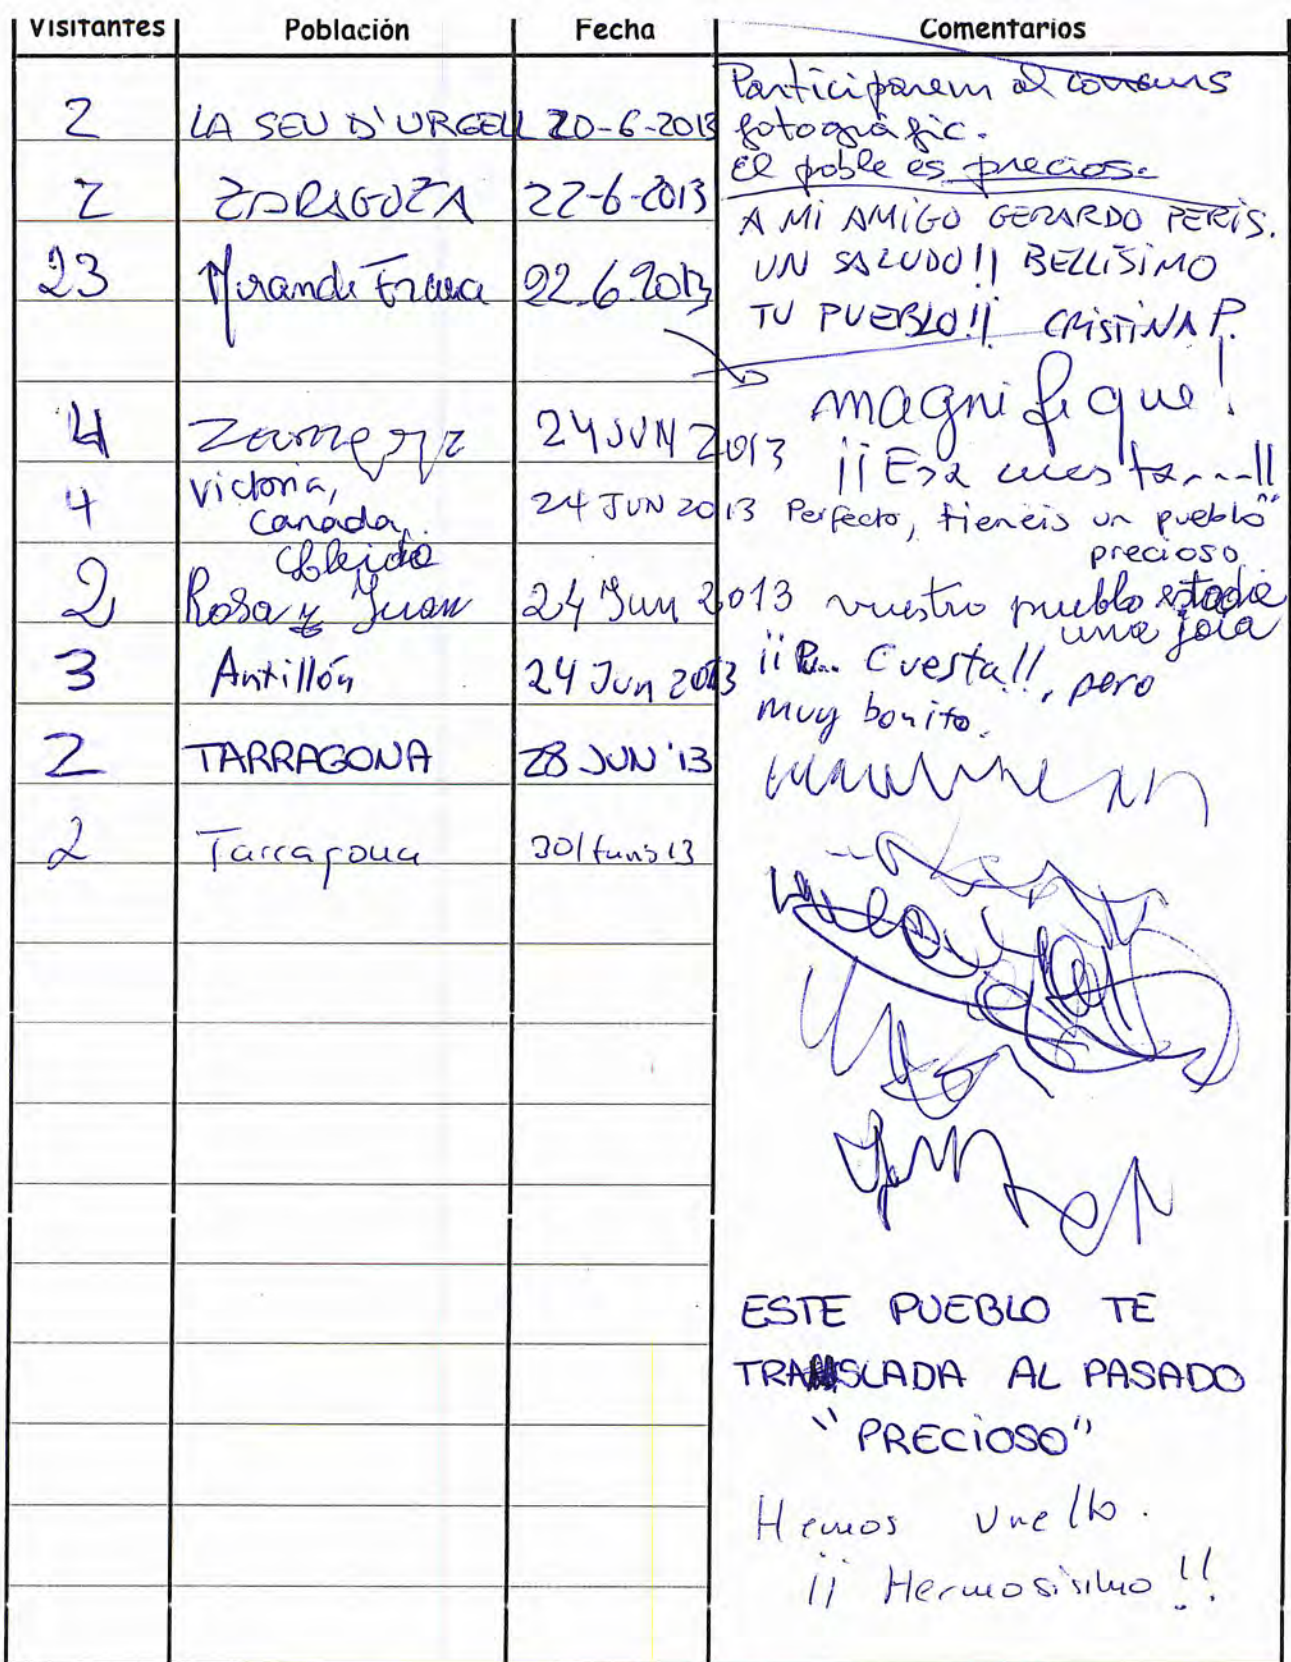 Visitantes Población Fecha Comentarios
2 LA SEU D'URGELL 20-6-2013
Participarem al concurs
fotogràfic.
El poble es precios.
2 ZARAGOZA 22-6-2013
A MI AMIGO GERARDO PERIS.
UN SALUDO!! BELLÍSIMO
TU PUEBLO!! CRISTINA P.
23 Mirande 22.6.2013
magnifique!
4 24 JUN 2013 ¡¡Esa cuesta...!!
4 Victoria,
Canada,
24 JUN 2013 Perfecto, tieneis un pueblo
precioso
2 Rosa y Juan 24 Jun 2013 vuestro pueblo
una joia
3 Antillón 24 Jun 2013 ¡¡P... Cuesta!!, pero
muy bonito.
2 TARRAGONA 28 JUN '13
2 Tarragona 30/ 13
ESTE PUEBLO TE
TRANSLADA AL PASADO
"PRECIOSO"
Hemos vuelto.
¡¡ Hermosisimo !!